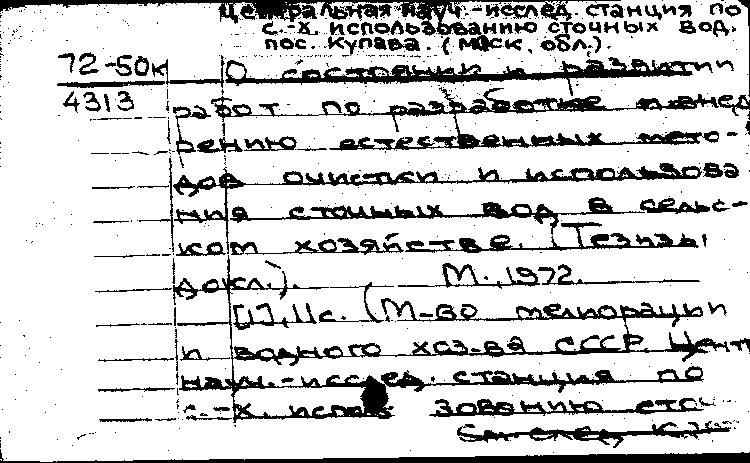 Центральная науч.-исслед. станция по
с.-х. использованию сточных вод.
пос. Купава. (Моск. обл.).
72-50к
4313
О состоянии и развитии
работ по разработке и внед
рению естественных мето-
дов очистки и использова
ния сточных вод в сельс-
ком хозяйстве. (Тезизы
докл.). М., 1972.
[1], 11с. (М-во мелиорации
и водного хоз-ва СССР. Центр
науч.-исслед. станция по
с.-х. исполь зованию сточ
См. след. к.